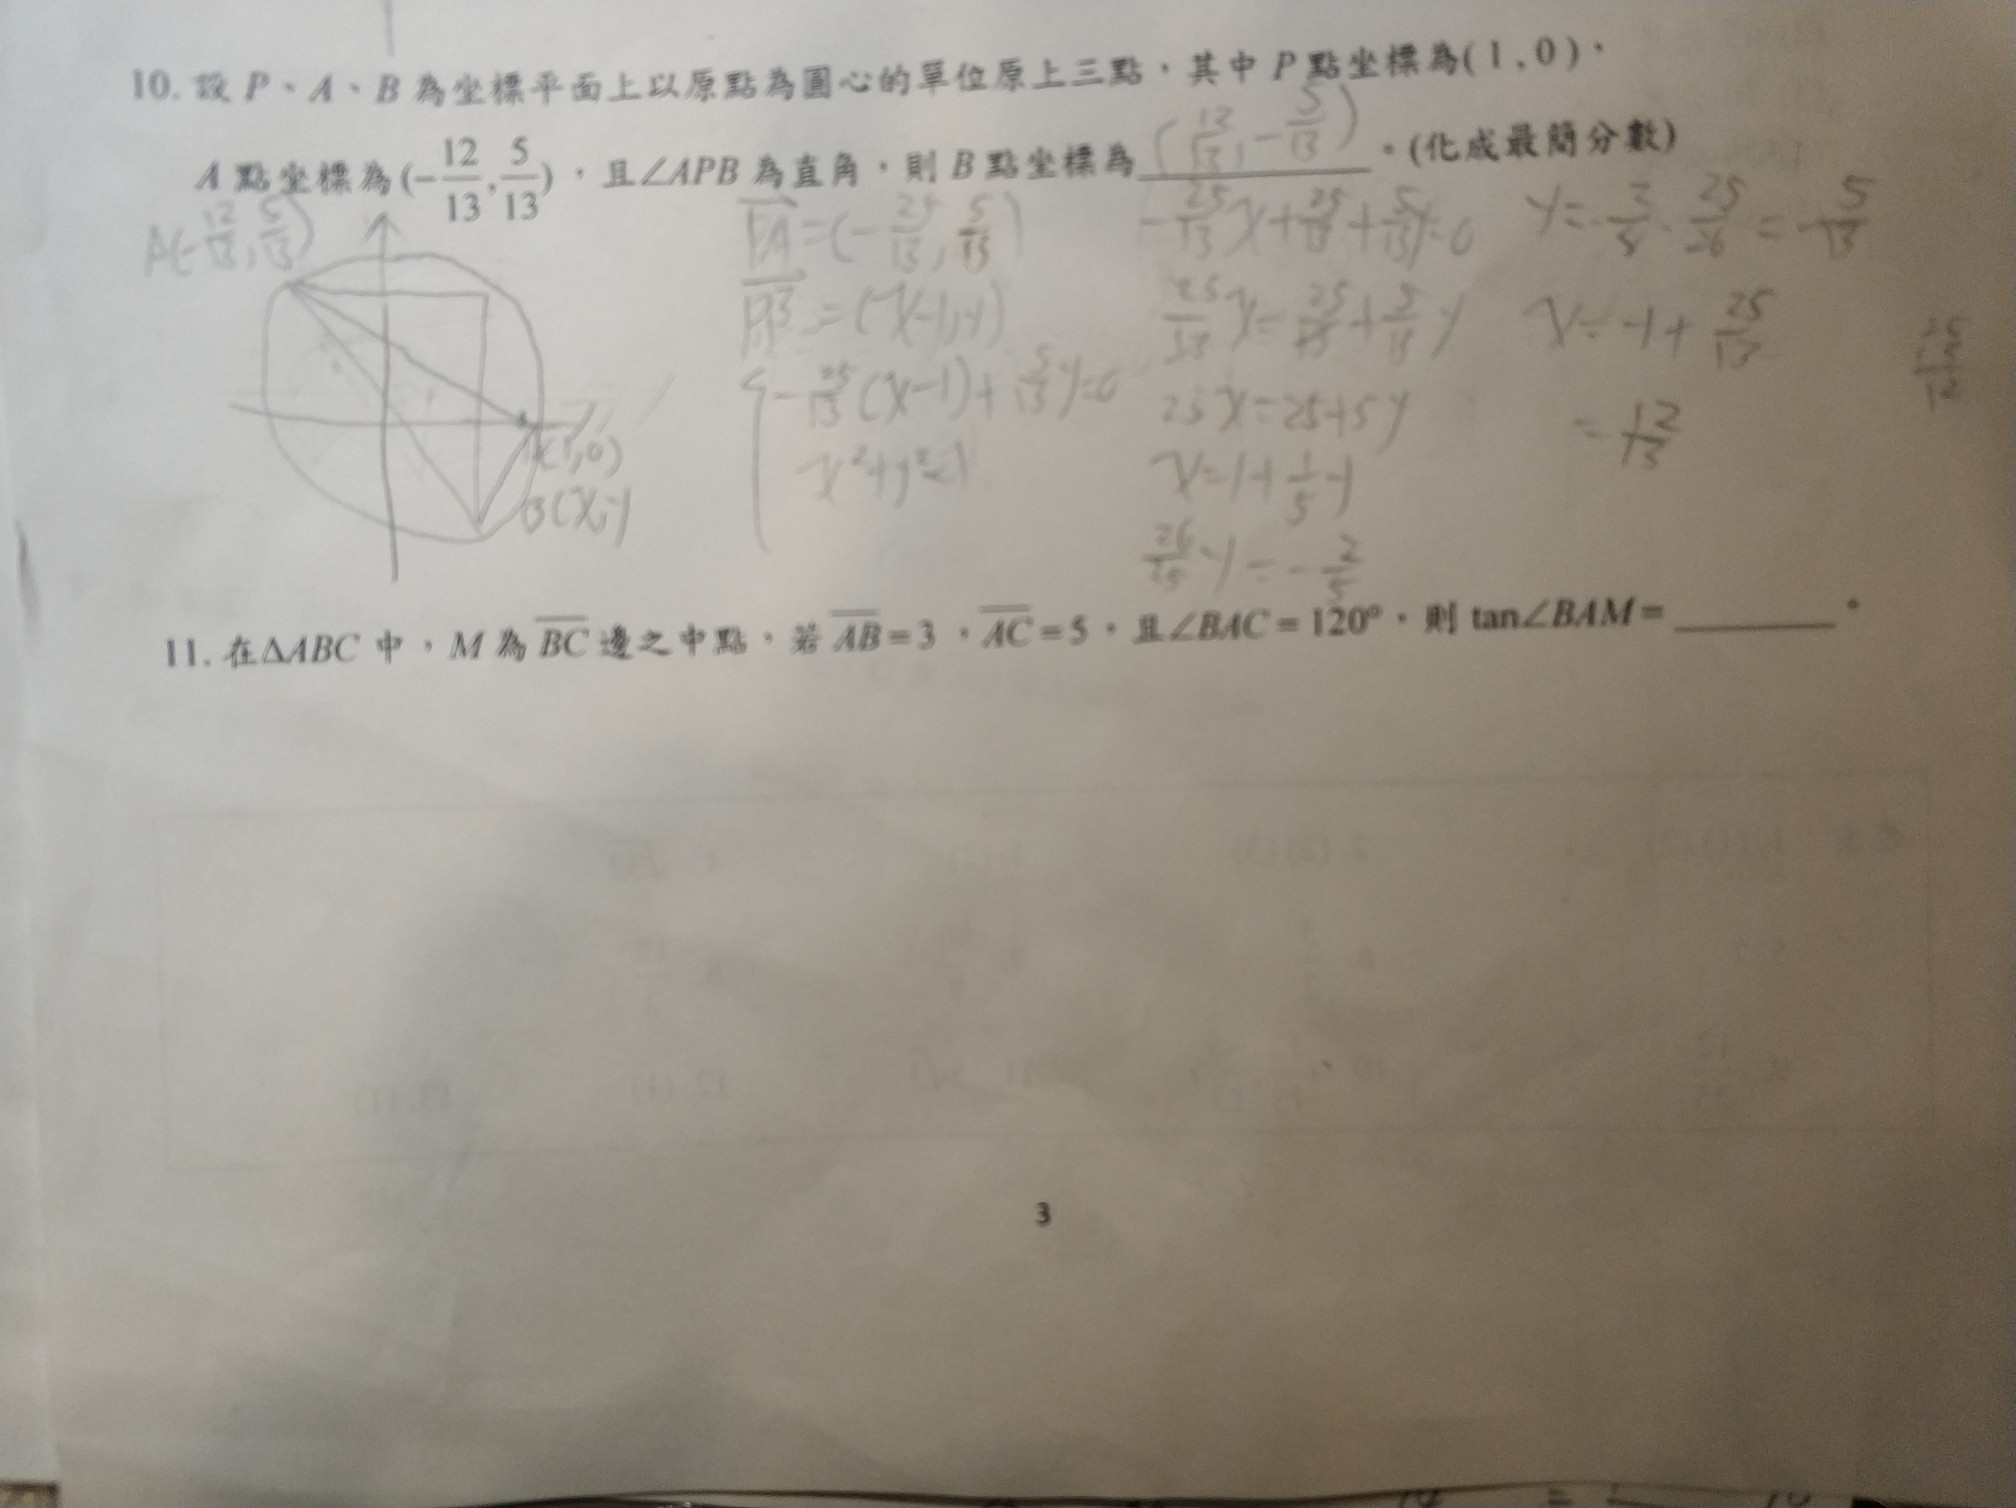 10. 設 P、A、B 為坐標平面上以原點為圓心的單位原上三點，其中 P 點坐標為(1,0)，
A 點坐標為(-12/13, 5/13)，且∠APB 為直角，則 B 點坐標為 (12/13, -5/13) 。(化成最簡分數)
A(-12/13, 5/13)
(1,0)
B(x,y
PA=(-25/13, 5/13)
PB=(x-1,y)
-25/13(x-1)+5/13y=0
x²+y²=1
-25/13x+25/13+5/13y=0
25/13x=25/13+5/13y
25x=25+5y
x=1+1/5y
26/25y=-2/5
y=-2/5·25/26=-5/13
=12/13
11. 在ΔABC 中，M 為 BC 邊之中點，若 AB=3，AC=5，且∠BAC=120°，則 tan∠BAM=________。
3